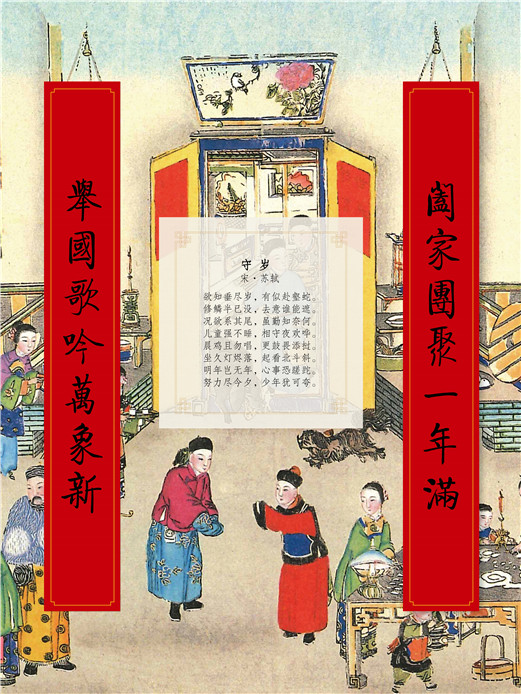 闔家團聚一年滿
舉國歌吟萬象新
守岁
宋·苏轼
欲知垂尽岁，有似赴壑蛇。
修鳞半已没，去意谁能遮。
况欲系其尾，虽勤知奈何。
儿童强不睡，相守夜欢哗。
晨鸡且勿唱，更鼓畏添挝。
坐久灯烬落，起看北斗斜。
明年岂无年，心事恐蹉跎。
努力尽今夕，少年犹可夸。